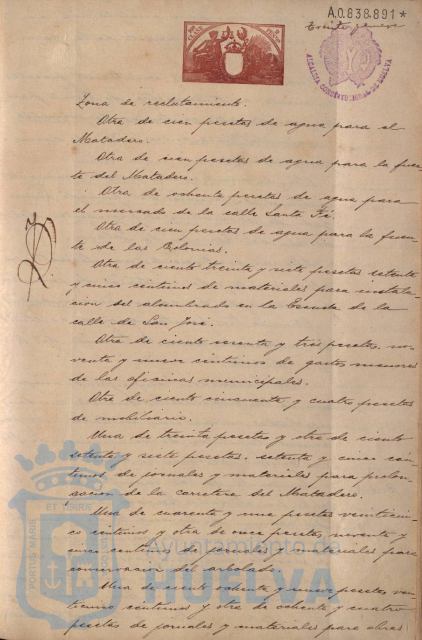 A.0.838.891*
Treinta y nueve
ALCALDIA CONSTITUCIONAL DE HUELVA
Zona de reclutamiento.
Otra de cien pesetas de agua para el
Matadero.
Otra de cien pesetas de agua para la fuen-
te del Matadero.
Otra de ochenta pesetas de agua para
el mercado de la calle Santa Fé.
Otra de cien pesetas de agua para la fuen-
te de las Colonias.
Otra de ciento treinta y siete pesetas setenta
y cinco centimos de materiales para instala-
cion del alumbrado en la Escuela de la
calle de San José.
Otra de ciento sesenta y tres pesetas, no-
venta y nueve centimos de gastos menores
de las oficinas municipales.
Otra de ciento cincuenta y cuatro pesetas
de mobiliario.
Una de treinta pesetas y otra de ciento
setenta y siete pesetas, setenta y cinco cén-
timos de jornales y materiales para prolon-
gacion de la carretera del Matadero.
Una de cuarenta y una pesetas veinticin-
co centimos y otra de once pesetas, noventa y
cinco centimos de jornales y materiales para
conservacion del arbolado.
Una de ciento ochenta y nueve pesetas vein-
tiuno centimos y otra de ochenta y cuatro
pesetas de jornales y materiales para obras
PORTUS MARIS ET TERRÆ
Ayuntamiento de
HUELVA